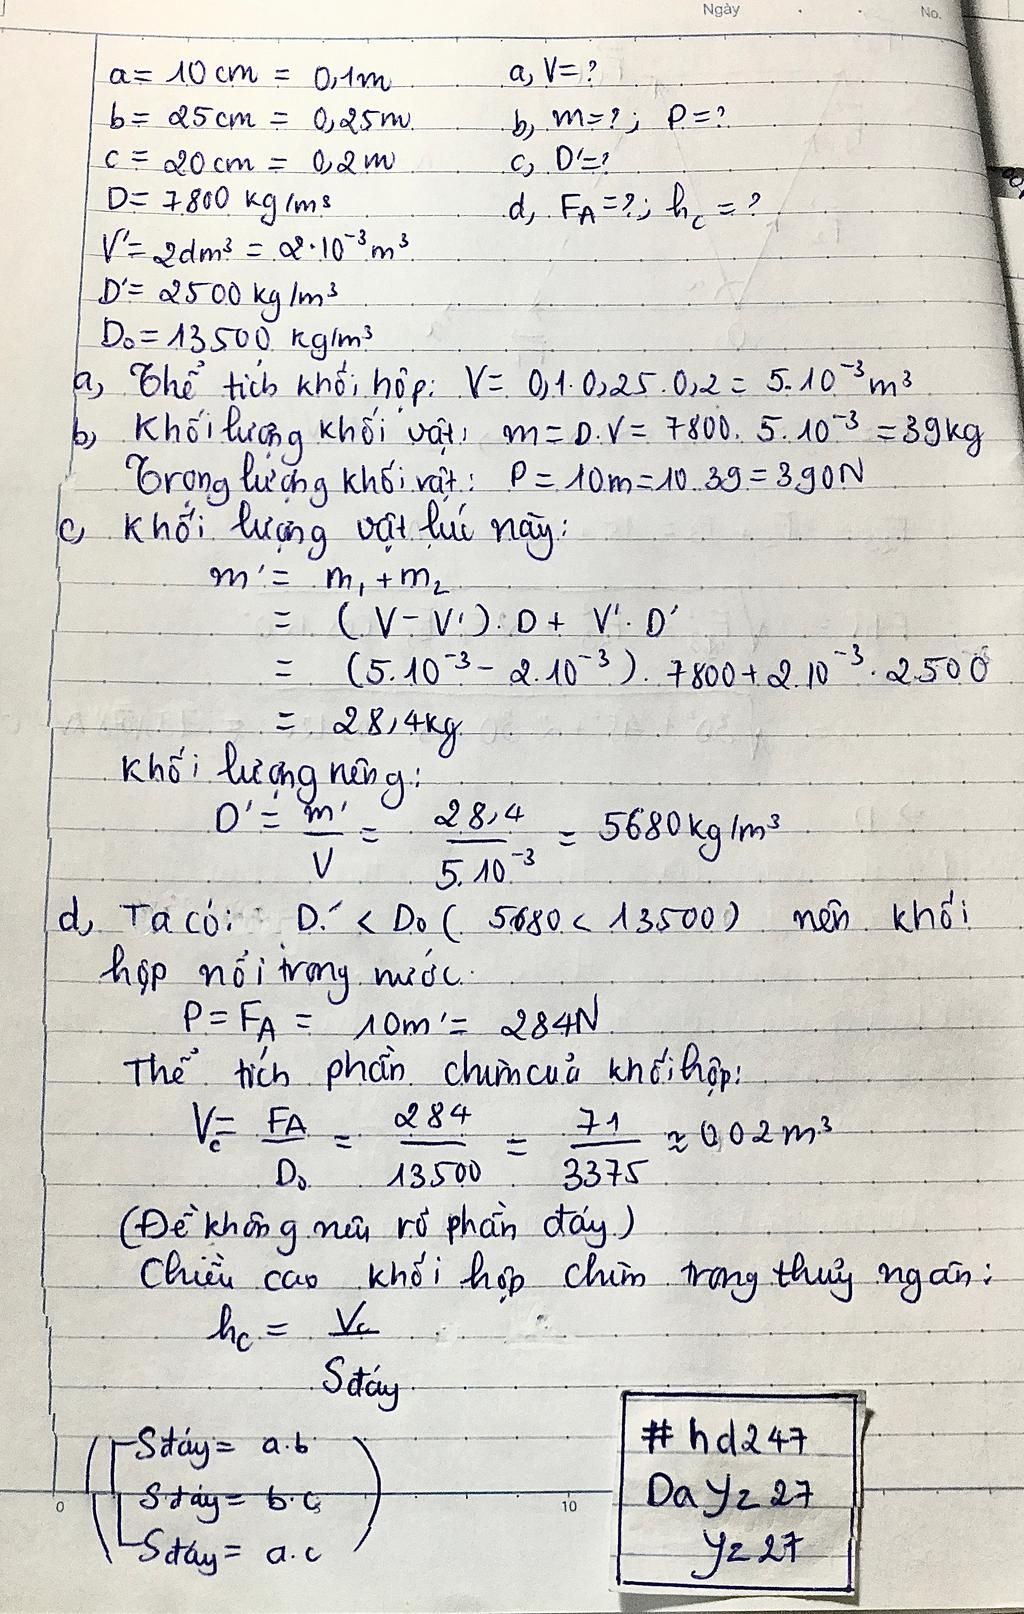 Ngày
No.
a = 10 cm = 0,1m a, V = ?
b = 25 cm = 0,25m b, m = ? ; P = ?
c = 20 cm = 0,2m c, D' = ?
D = 7800 kg/m³ d, FA = ? ; hc = ?
V' = 2dm³ = 2.10⁻³ m³
D' = 2500 kg/m³
D₀ = 13500 kg/m³
a, Thể tích khối hộp: V = 0,1. 0,25. 0,2 = 5.10⁻³ m³
b, Khối lượng khối vật: m = D.V = 7800. 5.10⁻³ = 39kg
Trọng lượng khối vật: P = 10m = 10. 39 = 390N
c, Khối lượng vật lúc này:
m' = m₁ + m₂
= (V - V'). D + V'. D'
= (5.10⁻³ - 2.10⁻³). 7800 + 2.10⁻³. 2500
= 28,4kg
Khối lượng riêng:
D' = m'/V = 28,4/5.10⁻³ = 5680 kg/m³
d, Ta có: D' < D₀ ( 5680 < 13500) nên khối
hộp nổi trong nước.
P = FA = 10m' = 284N
Thể tích phần chìm của khối hộp:
Vc = FA/D₀ = 284/13500 = 71/3375 ≈ 0,02m³
(Đề không nêu rõ phần đáy)
Chiều cao khối hộp chìm trong thuỷ ngân:
hc = Vc/Sđáy
Sđáy = a.b
Sđáy = b.c
Sđáy = a.c
0 5 10
# hd247
Da Yz 27
Yz 27